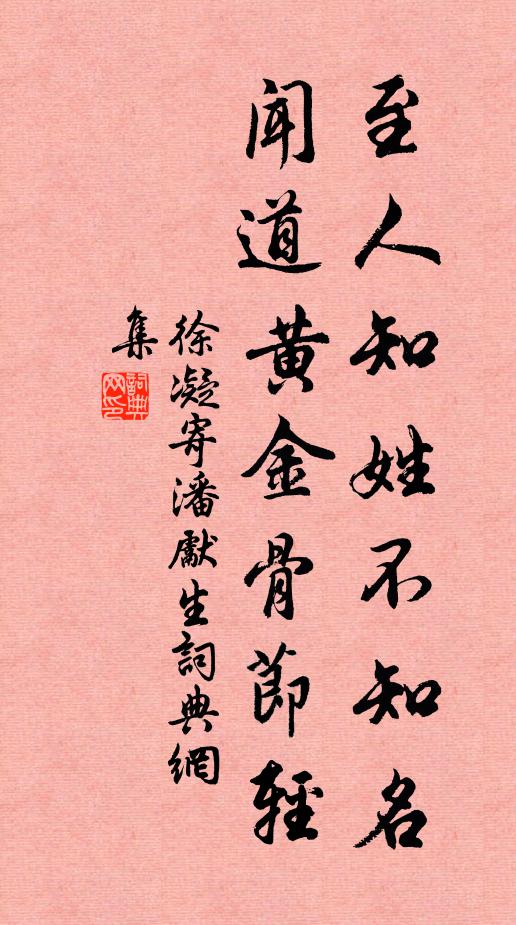 至人知姓不知名
聞道黃金骨節輕
徐凝寄潘獻生詞典網
集
詞典網印